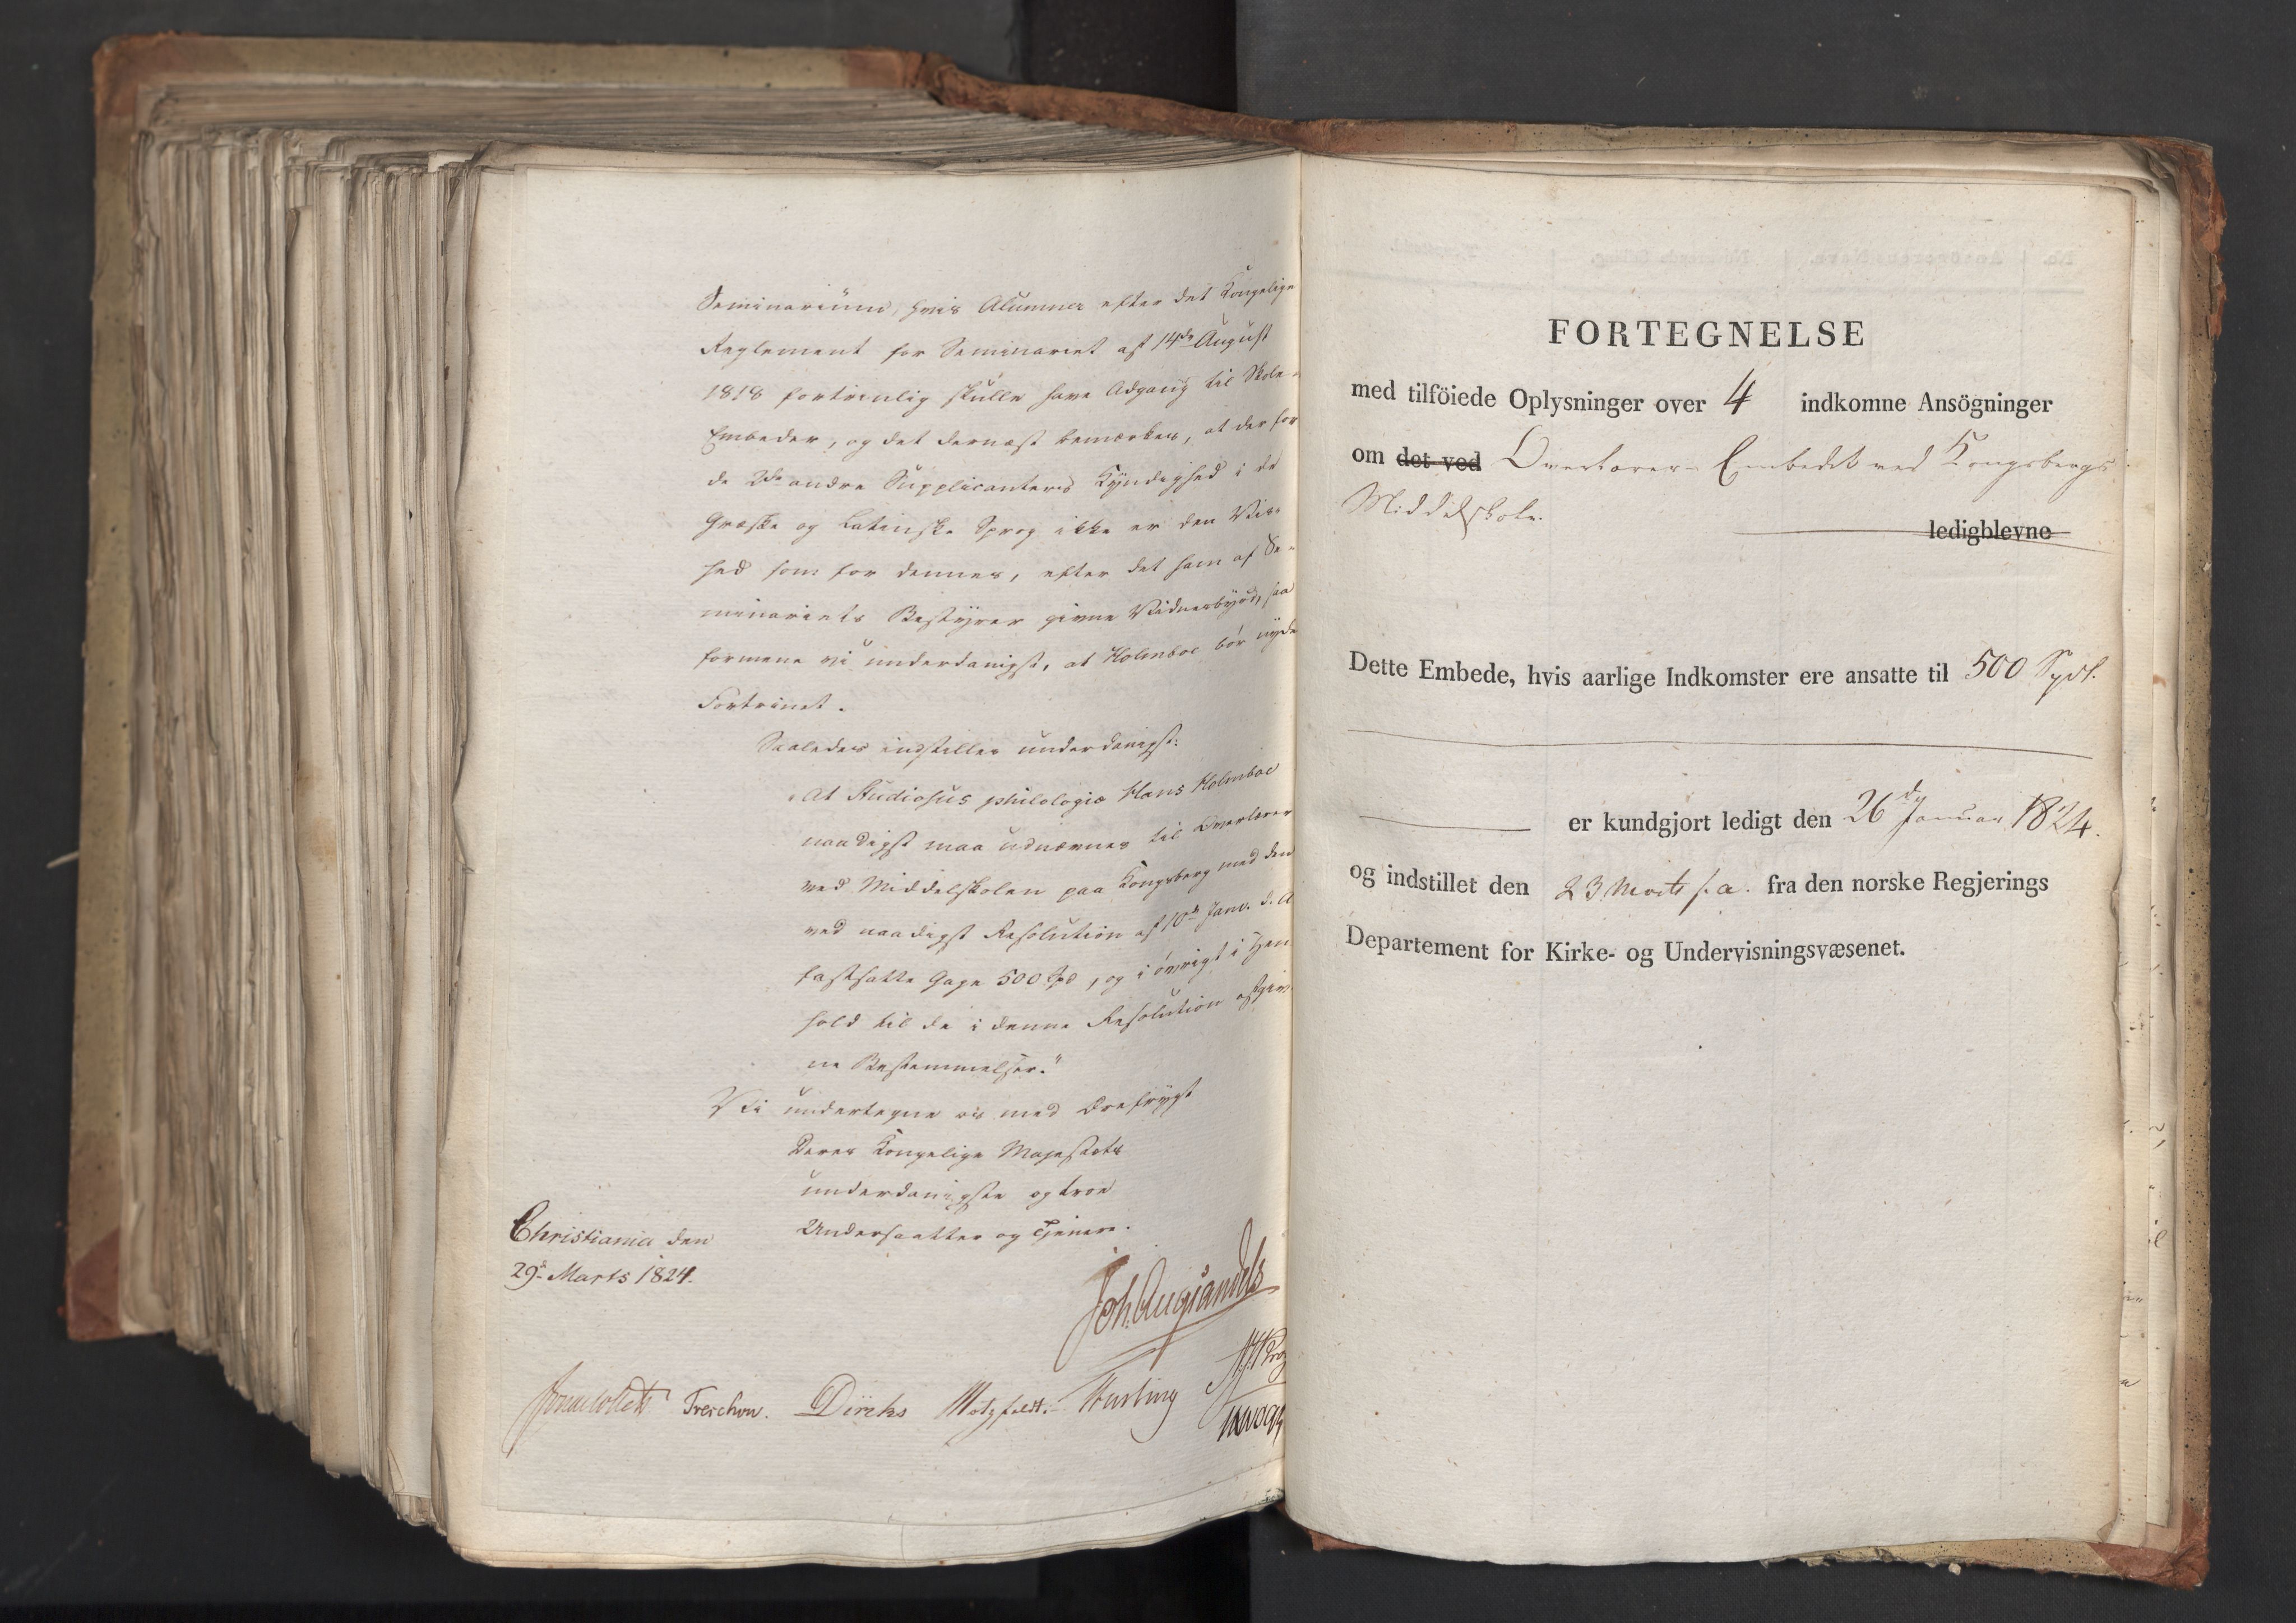 Seminarium, hvis Alumner efter det Kongelige
Reglement for Seminariet af 14de August
1818 fortrinlig skulle have Adgang til Skole-
Embeder, og det dernæst bemærkes, at der for
de 2de andre Supplicanteres Kyndighed i de
Græske og Latinske Sprog ikke er den Vis-
hed som for dennes, efter det ham af Se-
minariets Bestyrer givne Vidnesbyrd, saa
formene vi underdanigst, at Holmboe bör nyde
Fortrinet.
Saaledes indstilles underdanigst:
"At Studiosus philologiæ Hans Holmboe
naadigst maa udnævnes til Overlærer
ved Middelskolen paa Kongsberg med den
ved naadigst Resolution af 10de Janv. d. A.
fastsatte Gage 500 Spd, og i övrigt i Hen-
hold til de i denne Resolution afgiv-
ne Bestemmelser."
Vi undertegne os med Ærefrygt
Deres Kongelige Majestæts
underdanigste og troe
Undersaatter og Tjenere.
Christiania den
29de Marts 1824.
Joh. Aug. Sandels
Jonas Collett Treschow. Diriks Motzfeldt. Fasting
FORTEGNELSE
med tilföiede Oplysninger over 4 indkomne Ansögninger
om det ved Overlærer-Embedet ved Kongsbergs
Middelskole.
ledigblevne
Dette Embede, hvis aarlige Indkomster ere ansatte til 500 Spdl.
er kundgjort ledigt den 26de Januar 1824.
og indstillet den 23 Marts s. a. fra den norske Regjerings
Departement for Kirke- og Undervisningsvæsenet.